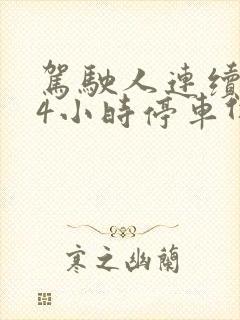 駕駛人連續
4小時停車
寒之幽蘭